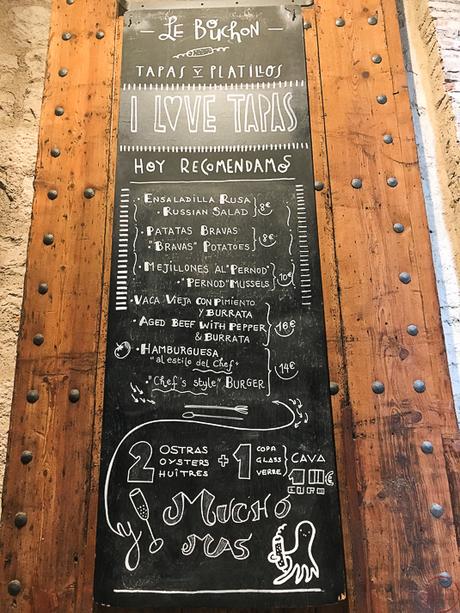 LE BUCHON
TAPAS Y PLATILLOS
I LOVE TAPAS
HOY RECOMENDAMOS
· ENSALADILLA RUSA
· RUSSIAN SALAD 8€
· PATATAS BRAVAS
· "BRAVAS" POTATOES 8€
· MEJILLONES AL "PERNOD"
· "PERNOD" MUSSELS 10€
· VACA VIEJA CON PIMIENTO
Y BURRATA
· AGED BEEF WITH PEPPER
& BURRATA
· HAMBURGUESA
"al estilo del Chef"
· "Chef's style" BURGER 14€
2 OSTRAS
OYSTERS
HUÎTRES
+ 1 COPA
GLASS
VERRE
CAVA
EURO
Y MUCHO
MAS